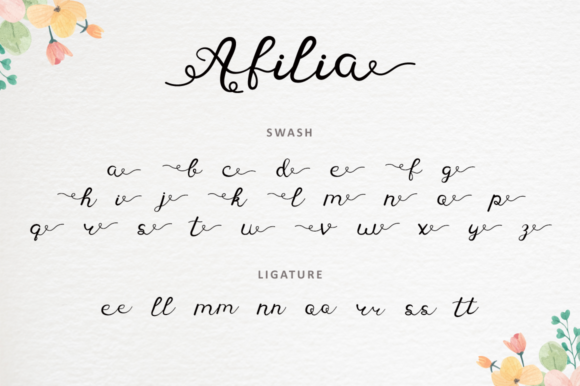 Afilia
SWASH
a b c d e f g
h i j k l m n o p
q r s t u v w x y z
LIGATURE
ee ll mm nn oo rr ss tt